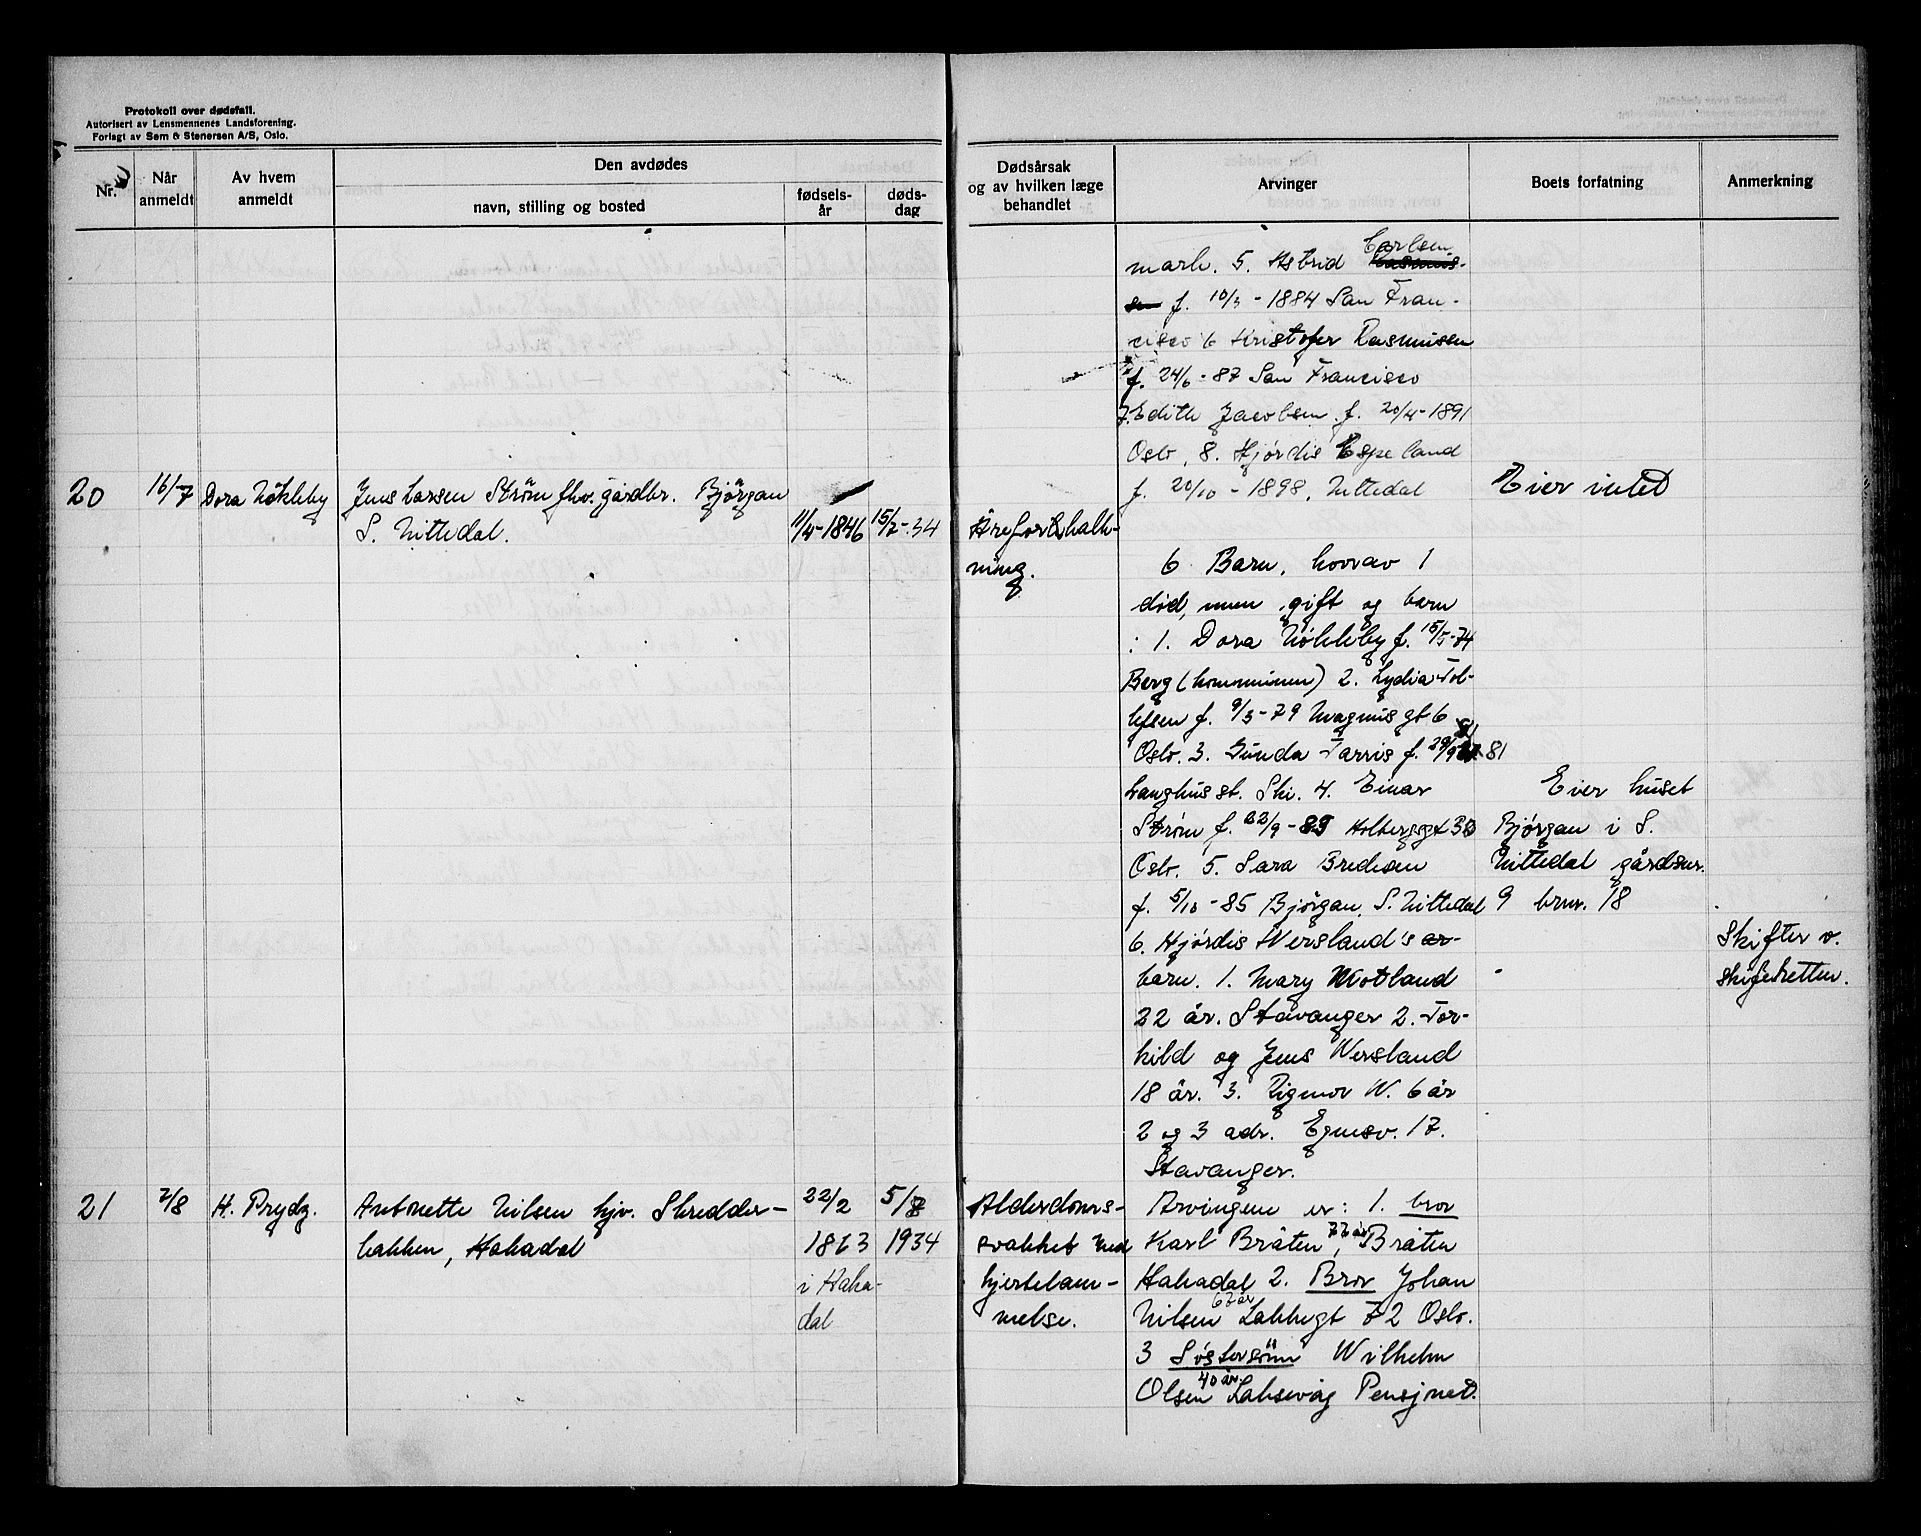 Protokoll over dødsfall.
Autorisert av Lensmennenes Landsforening.
Forlagt av Sem & Stenersen A/S, Oslo.
Nr.
Når anmeldt
Av hvem anmeldt
Den avdødes
navn, stilling og bosted
fødsels-år
døds-dag
Dødsårsak og av hvilken læge behandlet
Arvinger
Boets forfatning
Anmerkning
Carlsen
mark. 5. Astrid Rasmus-
sen f. 10/3 - 1884 San Fran-
cisco 6 Kristofer Rasmussen
f. 24/6 - 87 San Francisco
7. Edith Jacobsen f. 20/4 - 1891
Oslo, 8. Hjørdis Espeland
f. 20/10 - 1898, Nittedal
Eier intet
20
16/7
Dora Nökleby
Jens Larsen Strøm fhv. gårdbr. Bjørgan
S. Nittedal.
11/4-1846
15/7-34
Areforkalk-
ning.
6 Barn, hvorav 1
død, men gift og barn
: 1. Dora Nökleby f. 15/5-74
Berg (kommunen) 2. Lydia Tol-
lefsen f. 9/3-79 Magnus gt 6
Oslo. 3. Gunda Tarris f. 29/9 81
Langhus st. Ski. 4. Einar
Strøm f. 22/9 - 83 Holbergsgt 30
Oslo. 5. Sara Bredesen
f. 5/10 - 85 Bjørgan, S. Nittedal
6. Hjørdis Wersland's ar-
barn. 1. Mary Motland
22 år. Stavanger 2. Tor-
kild og Jens Wersland
18 år. 3. Rigmor W. 6 år
2 og 3 adr. Egnesv. 17.
Stavanger.
Eier huset
Bjørgan i S.
Nittedal gårdsnr.
9 brnr. 18
Skifter v.
skifteretten.
21
7/8
H. Prydz.
Antonette Nilsen hjv. Skredder-
bakken, Hakadal
22/2
1863
i Haka-
dal
5/8
1934
Alderdoms-
svakhet med
hjertelam-
melse.
Arvingene er: 1. bror
Karl Bråten 77 år, Bråten
Hakadal 2. Bror Johan
Nilsen 67 år Lakkegt 72 Oslo.
3 Søstersönn Wilhelm
Olsen 40 år. Laksevåg Pensjonat.